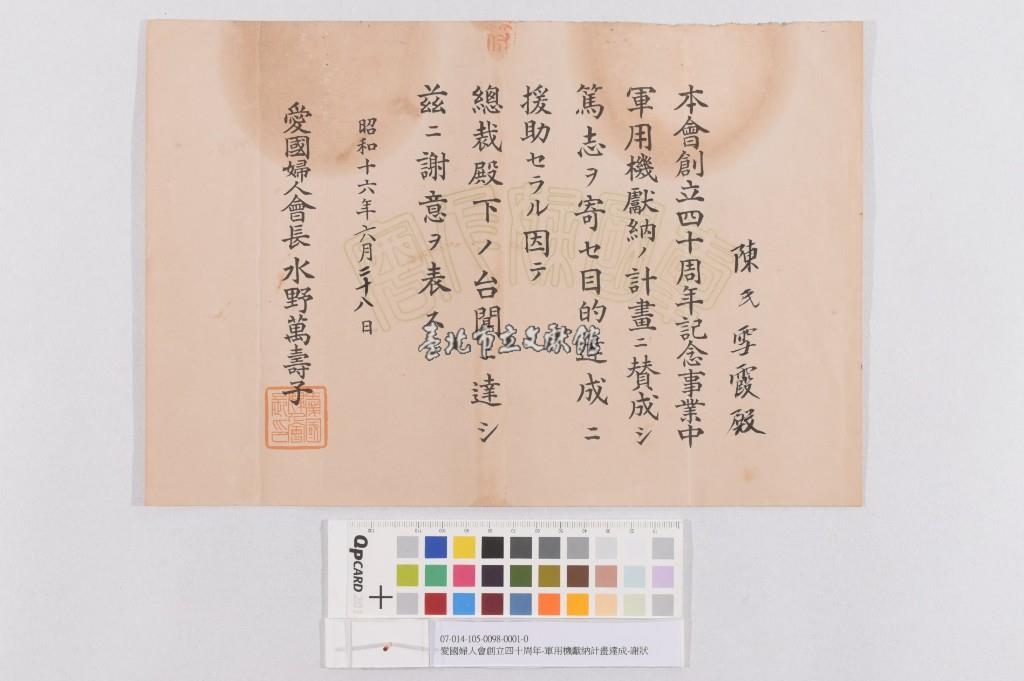 陳氏雪霞殿
本會創立四十周年記念事業中
軍用機獻納ノ計畫ニ賛成シ
篤志ヲ寄セ目的達成ニ
援助セラル因テ
總裁殿下ノ台聞ニ達シ
茲ニ謝意ヲ表ス
昭和十六年六月二十八日
愛國婦人會長水野萬壽子
臺北市立文獻館
QPCARD 201
07-014-105-0098-0001-0
愛國婦人會創立四十周年-軍用機獻納計畫達成-謝狀